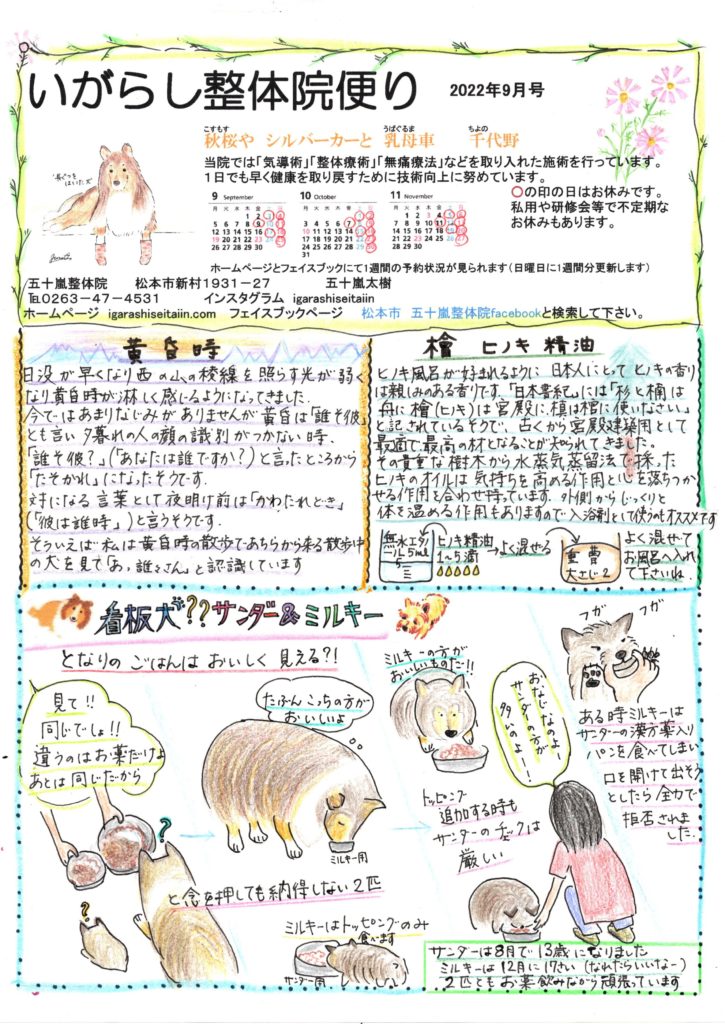 いがらし整体院便り 2022年9月号
こすもす うばぐるま ちよの
秋桜や シルバーカーと 乳母車 千代野
当院では「気導術」「整体療術」「無痛療法」などを取り入れた施術を行っています。
1日でも早く健康を取り戻すために技術向上に努めています。
長ぐつを
はいた犬
9 September 10 October 11 November
〇の印の日はお休みです。
私用や研修会等で不定期な
お休みもあります。
ホームページとフェイスブックにて1週間の予約状況が見られます(日曜日に1週間分更新します)
五十嵐整体院 松本市新村1931-27 五十嵐太樹
℡0263-47-4531 インスタグラム igarashiseitaiin
ホームページ igarashiseitaiin.com フェイスブックページ 松本市 五十嵐整体院facebookと検索して下さい。
黄昏時
日没が早くなり西の山の稜線を照らす光が弱く
なり黄昏時が淋しく感じるようになってきました.
今ではあまりなじみがありませんが黄昏は「誰そ彼」
とも言い夕暮れの人の顔の識別がつかない時.
「誰そ彼?」(「あなたは誰ですか?)と言ったところから
「たそがれ」になったそうです.
対になる言葉として夜明け前は「かわたれとき」
(「彼は誰時」)と言うそうです.
そういえば私は黄昏時の散歩であちらから来る散歩中
の犬を見て「あ,誰々さん」と認識しています
檜 ヒノキ 精油
ヒノキ風呂が好まれるように 日本人にとって ヒノキの香り
は親しみのある香りです.「日本書紀」には「杉と楠は
舟に檜(ヒノキ)は宮殿に,槙は棺に使いなさい」
と記されているそうで、古くから宮殿建築用として
最適で最高の材となることが知られてきました.
その貴重な樹木から水蒸気蒸留法で採った
ヒノキのオイルは気持ちを高める作用と心を落ちつか
せる作用を合わせ持っています. 外側からじっくりと
体を温める作用もありますので入浴剤として使うのもオススメです
無水エタノール5ml
ヒノキ精油
1~5滴
よく混ぜる
重曹
大さじ2
よく混ぜて
お風呂へ入れ
て下さいね.
看板犬??サンダー&ミルキー
となりの ごはんは おいしく 見える?!
見て!!
同じでしょ!!
違うのはお薬だけよ
あとは同じだから
たぶんこっちの方が
おいしいよ
ミルキー用
?
?
と念を押しても納得しない2匹
ミルキーはトッピングのみ
食べます
サンダー用
ミルキーの方が
おいしいものだ!!
トッピング
追加する時も
サンダーのチェックは
厳しい
おなじなのよー
サンダーの方が
多いのよー!!
フガ フガ
ある時ミルキーは
サンダーの漢方薬入り
パンを食べてしまい
口を開けて出そう
としたら全力で
拒否されま
した.
サンダーは8月で13歳になりました
ミルキーは12月に17さい(なれたらいいなー)
2匹ともお薬飲みながら頑張っています